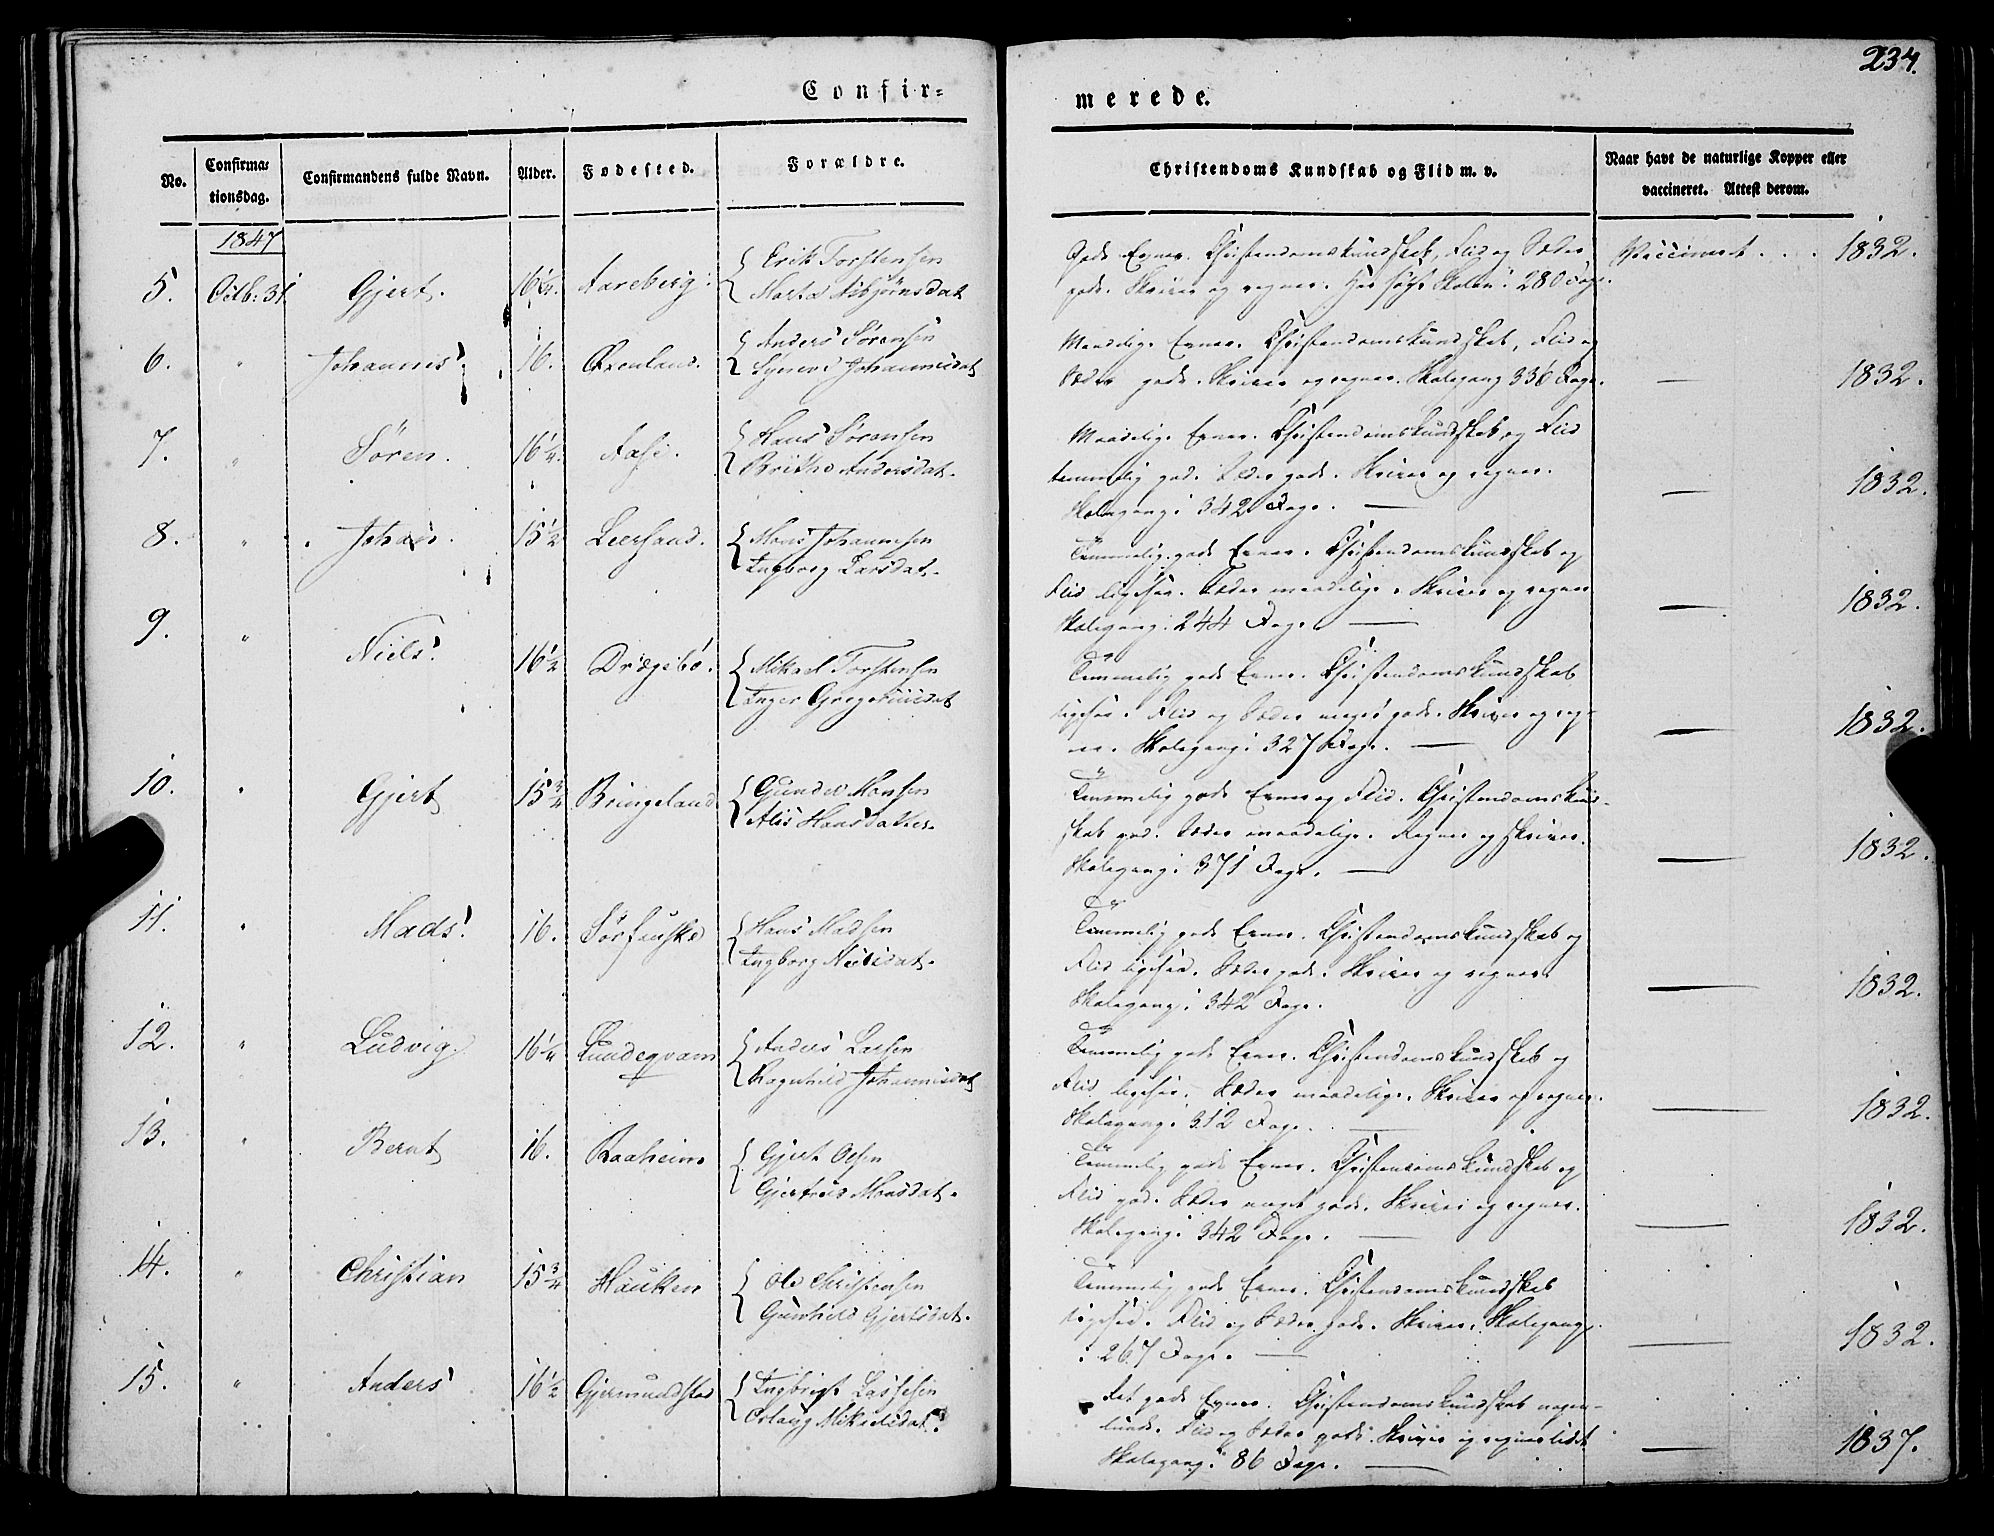 234.
Confir=
merede.
No.
Confirma=
tionsdag.
Confirmandens fulde Navn.
Alder.
Fødested.
Forældre.
Christendoms Kundskab og Flid m. v.
Naar havt de naturlige Kopper eller
vaccineret. Attest derom.
1847
5. Octb: 31 Gjert. 16 1/4. Aareberg.
Erik Torstensen
Marta Asbjönsdat
Gode Evner. Christendomskundskab, Flid og Sæder
gode. Skriver og regner. Har søgt Skolen i 280 Dage.
Vaccineret . . . 1832.
6. " Johannes 16. Öxenland.
Anders Sørensen
Synneve Johannesdat
Maadelige Evner. Christendomskundskab, Flid og
Sæder gode. Skriver og regner. Skolegang 336 Dage.
— 1832.
7. " Sören. 16 1/4. Aase.
Hans Sørensen
Brithe Andersdat.
Maadelige Evner. Christendomskundskab og Flid
temmelig god. Sæder gode. Skriver og regner.
Skolegang i 342 Dage. —
— 1832.
8. " Johan. 15 1/2 Leersund.
Hans Johannesen
Ingborg Larsdat.
Temmelig gode Evner. Christendomskundskab og
Flid ligesaa. Sæder maadelige. Skriver og regner
Skolegang i 244 Dage —
— 1832.
9. " Niels. 16 1/2 Drægebö.
Mikael Torstensen
Inger Gregoriusdat
Temmelig gode Evner. Christendomskundskab
ligesaa. Flid og Sæder meget gode. Skriver og reg-
ner. Skolegang i 327 Dage. —
— 1832.
10. " Gjert 15 3/4 Bringeland
Gunder Hansen
Alis Hansdatter
Temmelig gode Evner og Flid. Christendomskund-
skab god. Sæder maadelige. Regner og skriver.
Skolegang i 371 Dage. —
— 1832.
11. " Mads 16. Sörfenske
Hans Madsen
Ingborg Nielsdat.
Temmelig gode Evner. Christendomskundskab og
Flid ligesaa. Sæder gode. Skriver og regner
Skolegang i 342 Dage.
— 1832.
12. " Ludvig 16 1/4 Lundeqvam
Anders Larsen
Ragnhild Johannesdat
Temmelig gode Evner. Christendomskundskab og
Flid ligesaa. Sæder maadelige. Skriver og regner.
Skolegang i 312 Dage.
— 1832.
13. " Bernt 16. Raaheim
Gjert Olsen
Gjertrud Monsdat.
Temmelig gode Evner. Christendomskundskab og
Flid god. Sæder meget gode. Skriver og regner.
Skolegang i 342 Dage. —
— 1832.
14. " Christian 15 3/4 Hauken
Ole Christensen
Gunhild Gjertsdat.
Temmelig gode Evner. Christendomskundskab
ligesaa. Flid og Sæder gode. Skriver. Skolegang
i 267 Dage. —
— 1832.
15. " Anders 16 1/2 Gjermundstad
Ingbrigt Lassesen
Oslaug Mikkelsdat.
Ret gode Evner. Christendomskundskab
Flid og Sæder gode. Skriver og regner lidt
Skolegang i 86 Dage. —
— 1837.